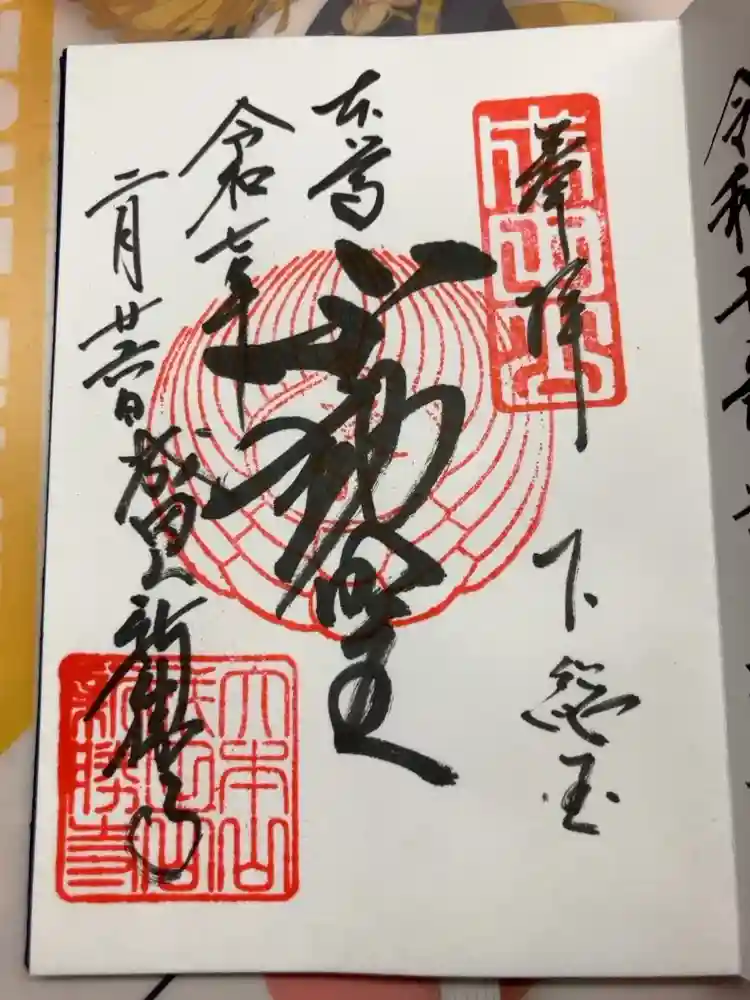 奉拝
成田山
下総国
本尊
不動明王
令和七年
二月廿六日
成田山
新勝寺
大本山
成田山
新勝寺
令和